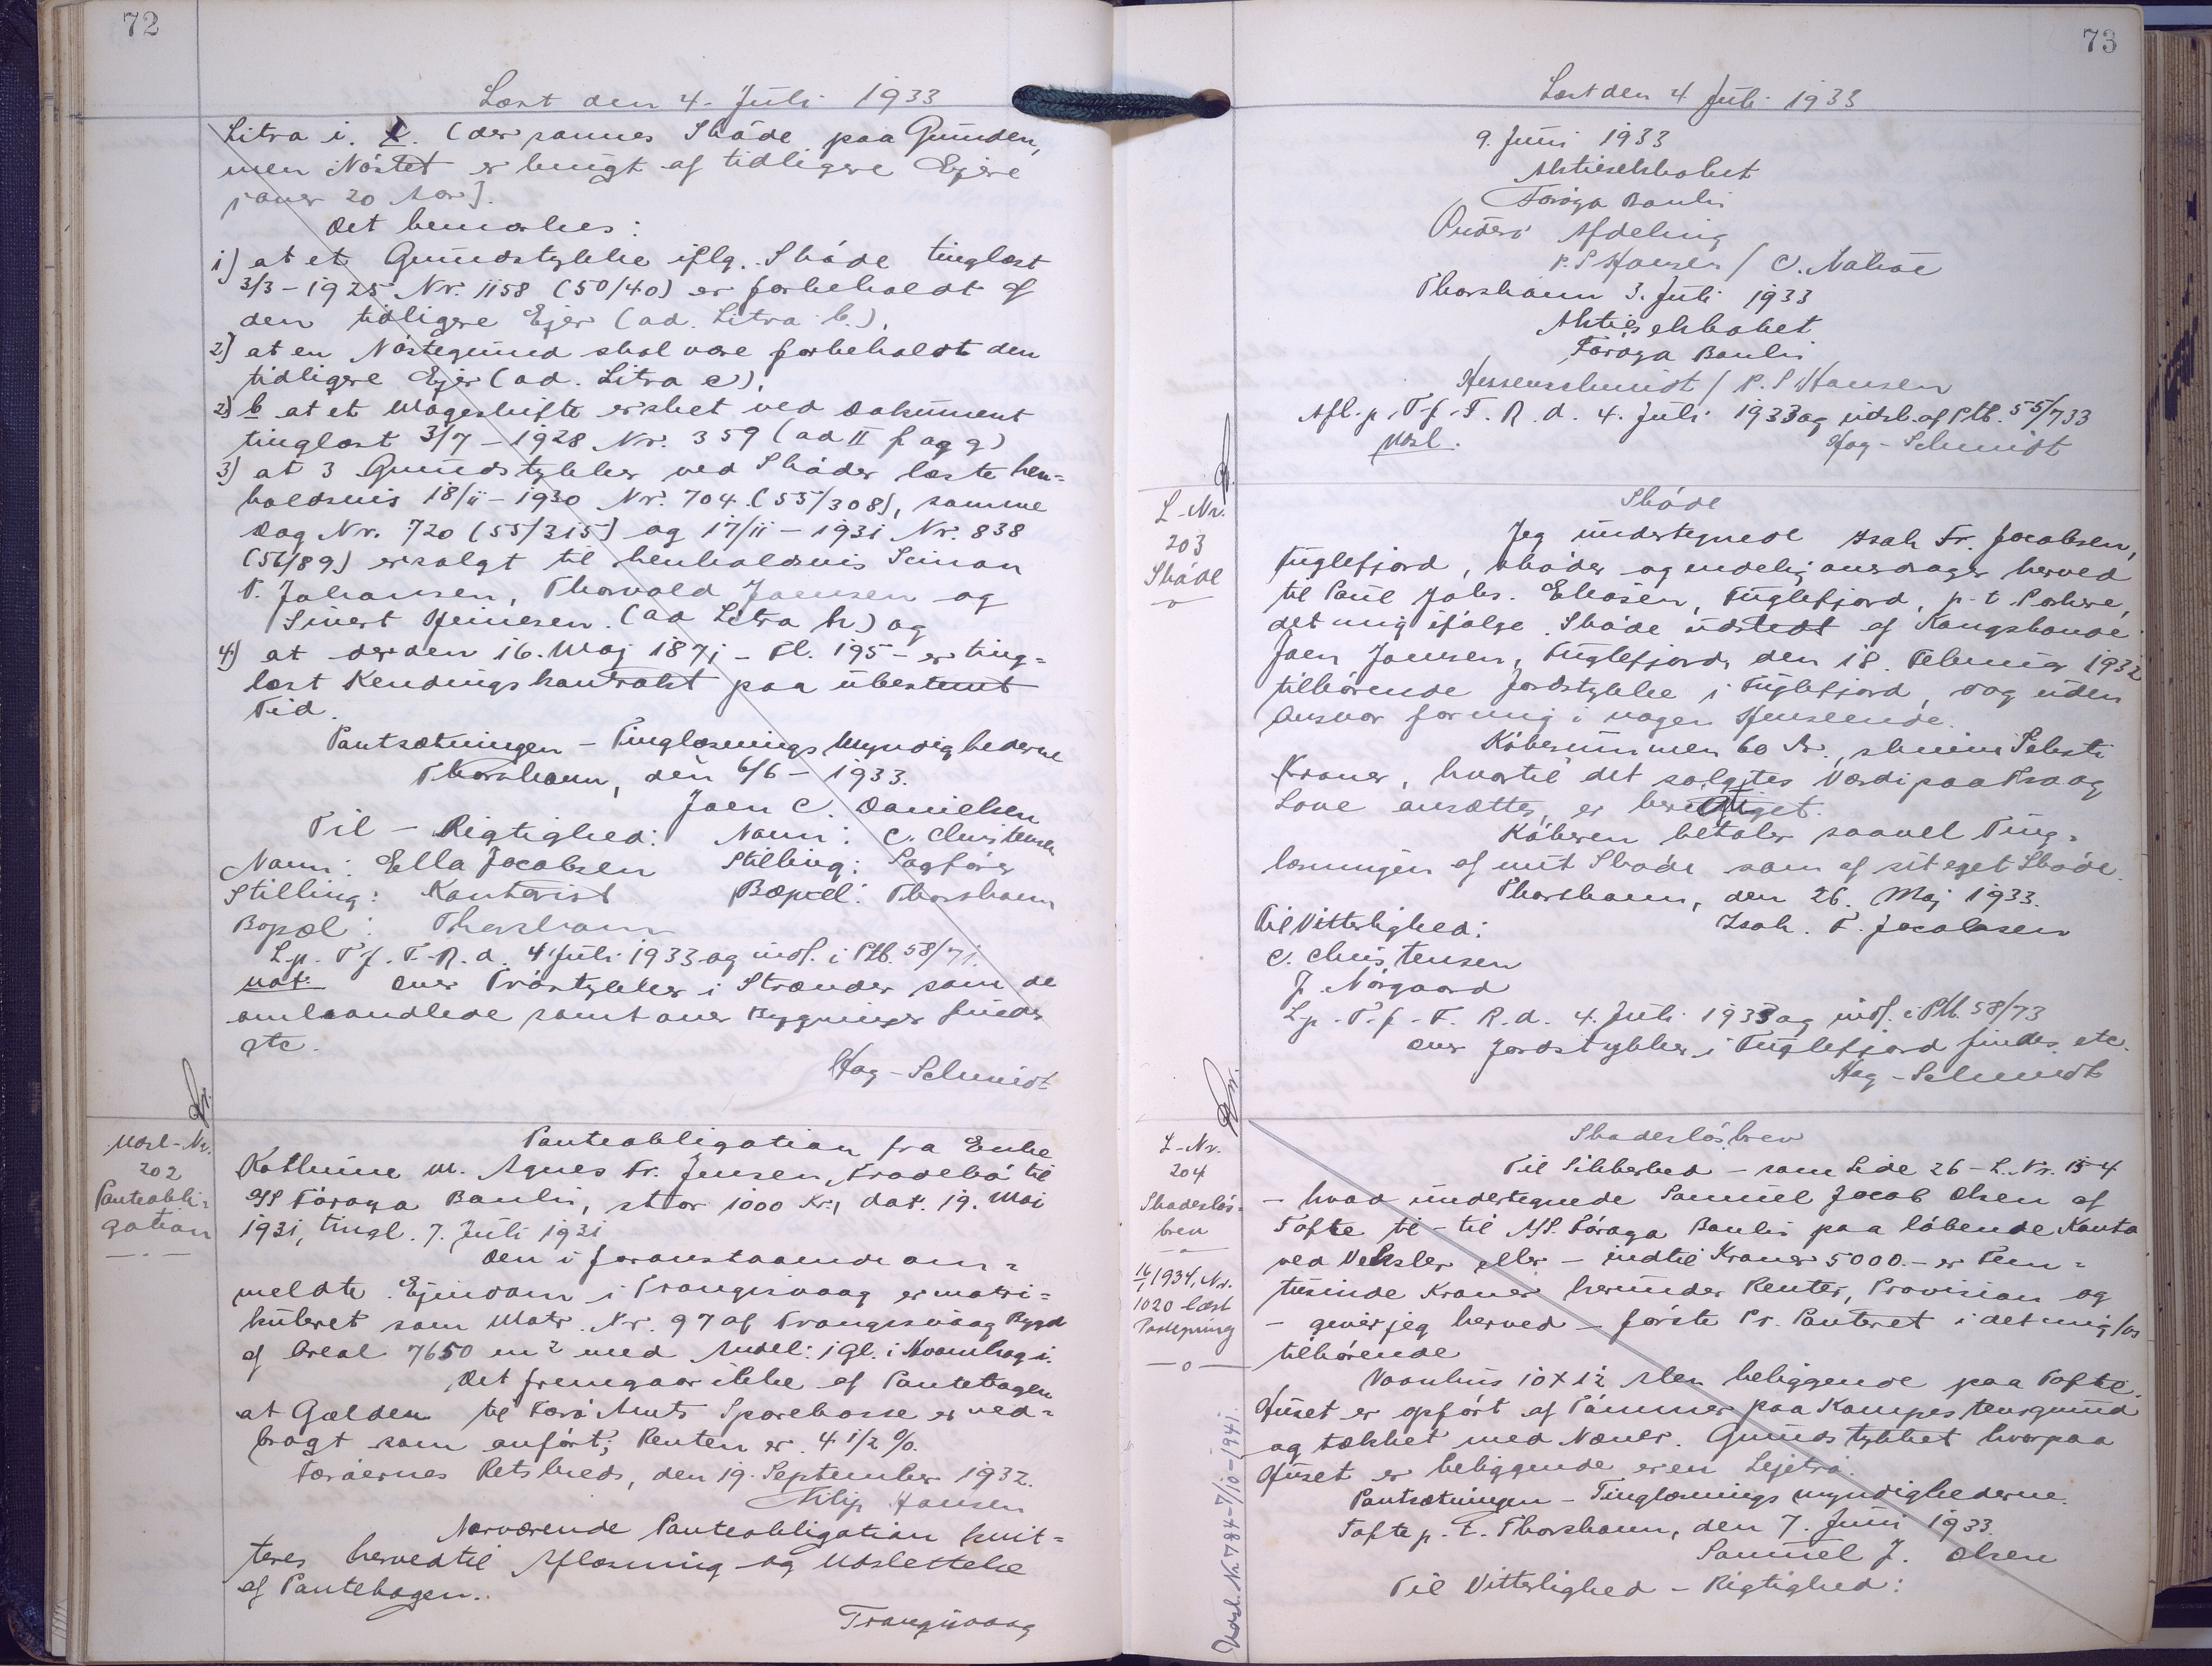 72
Læst den 4. Juli 1933
Litra i. (der savnes Skøde paa Grunden,
men Nöstet er brugt af tidligere Ejere
i over 20 Aar).
Det bemærkes:
1) at et Grundstykke iflg. Skøde tinglæst
3/3 - 1925 Nr. 1158 (50/40) er forbeholdt af
den tidligere Ejer (ad. Litra b.),
2) at en Nöstegrund skal være forbeholdt den
tidligere Ejer (ad. Litra c),
2) b at et Mageskifte er sket ved Dokument
tinglæst 3/7 - 1928 Nr. 359 (ad II f og g)
3) at 3 Grundstykker ved Skøder læste hen=
holdsvis 18/11 - 1930 Nr. 704 (55/308), samme
Dag Nr. 720 (55/315) og 17/11 - 1931 Nr. 838
(56/89) er solgt til henholdsvis Simon
P. Johansen, Thorvald Joensen og
Sivert Heinesen. (ad Litra h) og
4) at der den 16. Maj 1871 - Fl. 195 - er ting=
læst Kendingskontrakt paa ubestemt
Tid.
Pantsætningen - Tinglæsnings Myndighederne
Thorshavn, den 6/6 - 1933.
Joen C. Danielsen
Til - Rigtighed: Navn: C. Christensen
Navn: Ella Jacobsen Stilling: Sagfører
Stilling: Kontorist Bopæl: Thorshavn
Bopæl: Thorshavn
L. p. T. f. F. R. d. 4. Juli 1933 og indf. i Ptb. 58/71.
Not. over Tvöstykker i Strænder som de
omhandlede samt over Bygninger findes
etc.
Hag-Schmidt
Udsl-Nr.
202
Panteobli=
gation
Panteobligation fra Enke
Kathrine M. Agnes Fr. Jensen, Frodebø til
A/S Föroya Banki, stor 1000 Kr., dat. 19. Maj
1931, tingl. 7. Juli 1931
Den i foranstaaende om=
meldte Ejendom i Trangisvaag er matri=
kuleret som Matr. Nr. 97 af Trangisvaag Bygd
af Areal 7650 m² med Andel: 1 Gl. i Kvannhagi.
Det fremgaar ikke af Pantebogen
at Gælden til Færø Amts Sparekasse er ned=
bragt som anført; Renten er 4 1/2 %.
Færøernes Retskreds, den 19. September 1932.
Filip Hansen
Nærværende Panteobligation kvit=
teres herved til Aflæsning og Udslettelse
af Pantebogen.
Trangisvaag
73
Læst den 4 Juli 1933
9. Juni 1933
Aktieselskabet
Föroya Banki
Suderö Afdeling
P. S Hansen / C. Nolsøe
Thorshavn 3. Juli 1933
Aktieselskabet
Föroya Banki
Hessenschmidt / P. S Hansen
Afl. p. T. f. F. R. d. 4. Juli 1933 og udsl. af Ptb. 55/733
Udsl.
Hag-Schmidt
L-Nr.
203
Skøde
Skøde
Jeg undertegnede Isak Fr. Jacobsen,
Fuglefjord, skøder og endelig overdrager herved
til Paul Johs. Eliasen, Fuglefjord, p. t. Porkere,
det mig ifølge Skøde udstedt af Kongsbonde
Joen Joensen, Fuglefjord, den 18. Februar 1932
tilhørende Jordstykke i Fuglefjord, dog uden
Ansvar for mig i nogen Henseende.
Købesummen 60 Kr., skriver Seksti
Kroner, hvortil det solgtes Værdi paa Tro og
Love ansættes, er berigtiget.
Køberen betaler saavel Ting=
læsningen af mit Skøde som af sit eget Skøde.
Thorshavn, den 26. Maj 1933.
Til Vitterlighed: Isak. F. Jacobsen
C. Christensen
J. Nörgaard
L. p. T. f. F. R. d. 4. Juli 1933 og indf. i Ptb. 58/73
over Jordstykker i Fuglefjord findes etc.
Hag-Schmidt
L-Nr.
204
Skadesløs=
brev
16/1 1934, Nr.
1020 læst
Paategning
Udsl. Nr. 784 - 7/10 - 1941.
Skadesløsbrev
Til Sikkerhed - som Side 26 - L. Nr. 154
- hvad undertegnede Samuel Jacob Olsen af
Tofte til - til A/S. Föroya Banki paa löbende Konto
ved Veksler eller - indtil Kroner 5000.- er Fem=
tusinde Kroner herunder Renter, Provision og
- giver jeg herved - første Pr. Panteret i det mig
tilhørende
Vaanhus 10 x 12 Alen beliggende paa Tofte.
Huset er opført af Tømmer paa Kampestensgrund
og tækket med Næver. Grundstykket hvorpaa
Huset er beliggende er en Lejetrö.
Pantsætningen - Tinglæsnings myndighederne.
Tofte p. t. Thorshavn, den 7. Juni 1933.
Samuel J. Olsen
Til Vitterlighed - Rigtighed: